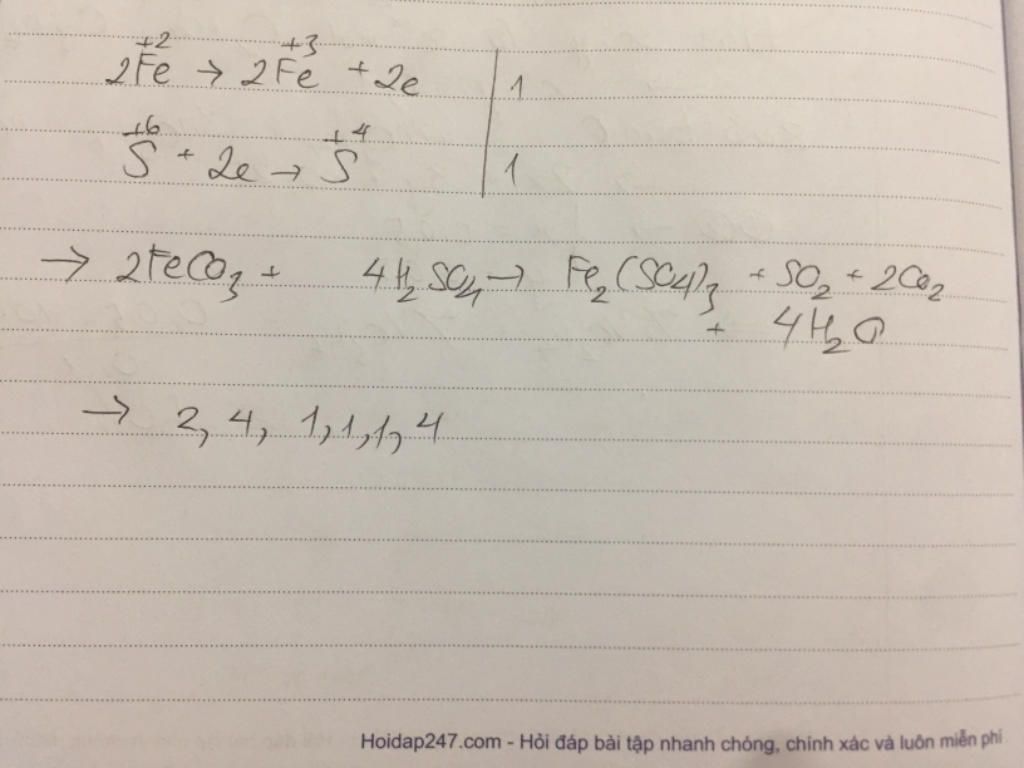 2Fe⁺² → 2Fe⁺³ + 2e | 1
S⁺⁶ + 2e → S⁺⁴ | 1
→ 2FeCO₃ + 4H₂SO₄ → Fe₂(SO₄)₃ + SO₂ + 2CO₂
+ 4H₂O
→ 2, 4, 1, 1, 1, 4
Hoidap247.com - Hỏi đáp bài tập nhanh chóng, chính xác và luôn miễn phí